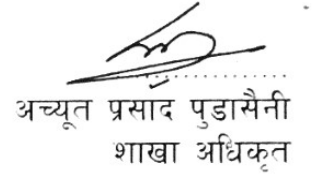 अच्यूत प्रसाद पुडासैनी
शाखा अधिकृत